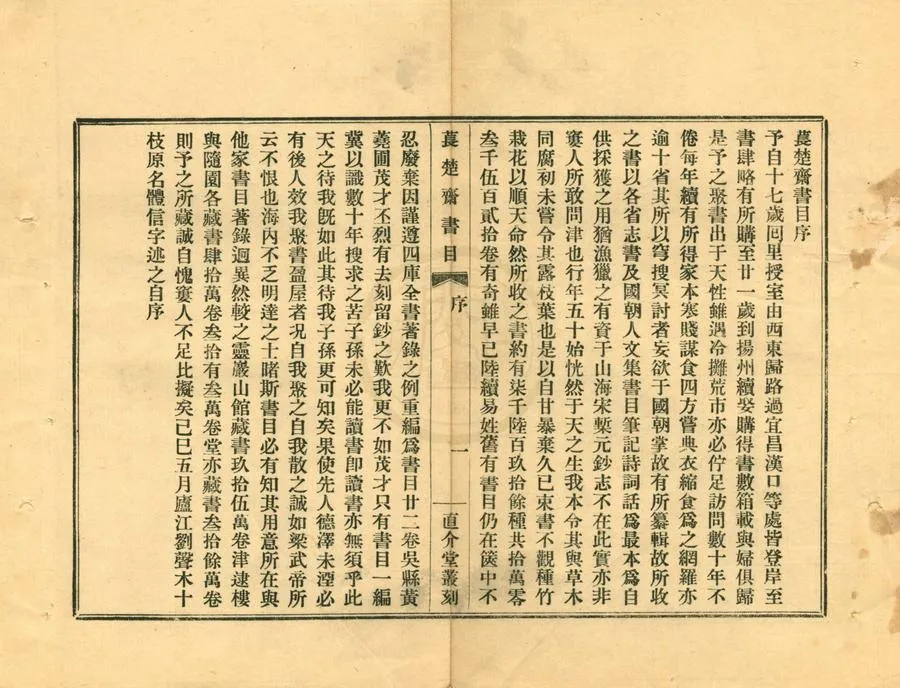 萇楚齋書目序
予自十七歲回里授室由西東歸路過宜昌漢口等處皆登岸至
書肆略有所購至廿一歲到揚州續娶購得書數箱載與婦俱歸
是予之聚書出于天性雖遇冷攤荒市亦必佇足訪問數十年不
倦每年續有所得家本寒賤謀食四方嘗典衣縮食爲之網羅亦
逾十省其所以穹搜冥討者妄欲于國朝掌故有所纂輯故所收
之書以各省志書及國朝人文集書目筆記詩詞話爲最本爲自
供採獲之用猶漁獵之有資于山海宋槧元鈔志不在此實亦非
窶人所敢問津也行年五十始恍然于天之生我本令其與草木
同腐初未嘗令其露枝葉也是以自甘暴棄久已束書不觀種竹
栽花以順天命然所收之書約有柒千陸百玖拾餘種共拾萬零
叁千伍百貳拾卷有奇雖早已陸續易姓舊有書目仍在篋中不
萇楚齋書目
序
一
直介堂叢刻
忍廢棄因謹遵四庫全書著錄之例重編爲書目廿二卷吳縣黃
蕘圃茂才丕烈有去刻留鈔之歎我更不如茂才只有書目一編
冀以識數十年搜求之苦子孫未必能讀書卽讀書亦無須乎此
天之待我旣如此其待我子孫更可知矣果使先人德澤未湮必
有後人效我聚書盈屋者況自我聚之自我散之誠如梁武帝所
云不恨也海內不乏明達之士睹斯書目必有知其用意所在與
他家書目著錄迥異然較之靈巖山館藏書玖拾伍萬卷津逮樓
與隨園各藏書肆拾萬卷叁拾有叁萬卷堂亦藏書叁拾餘萬卷
則予之所藏誠自愧窶人不足比擬矣己巳五月廬江劉聲木十
枝原名體信字述之自序